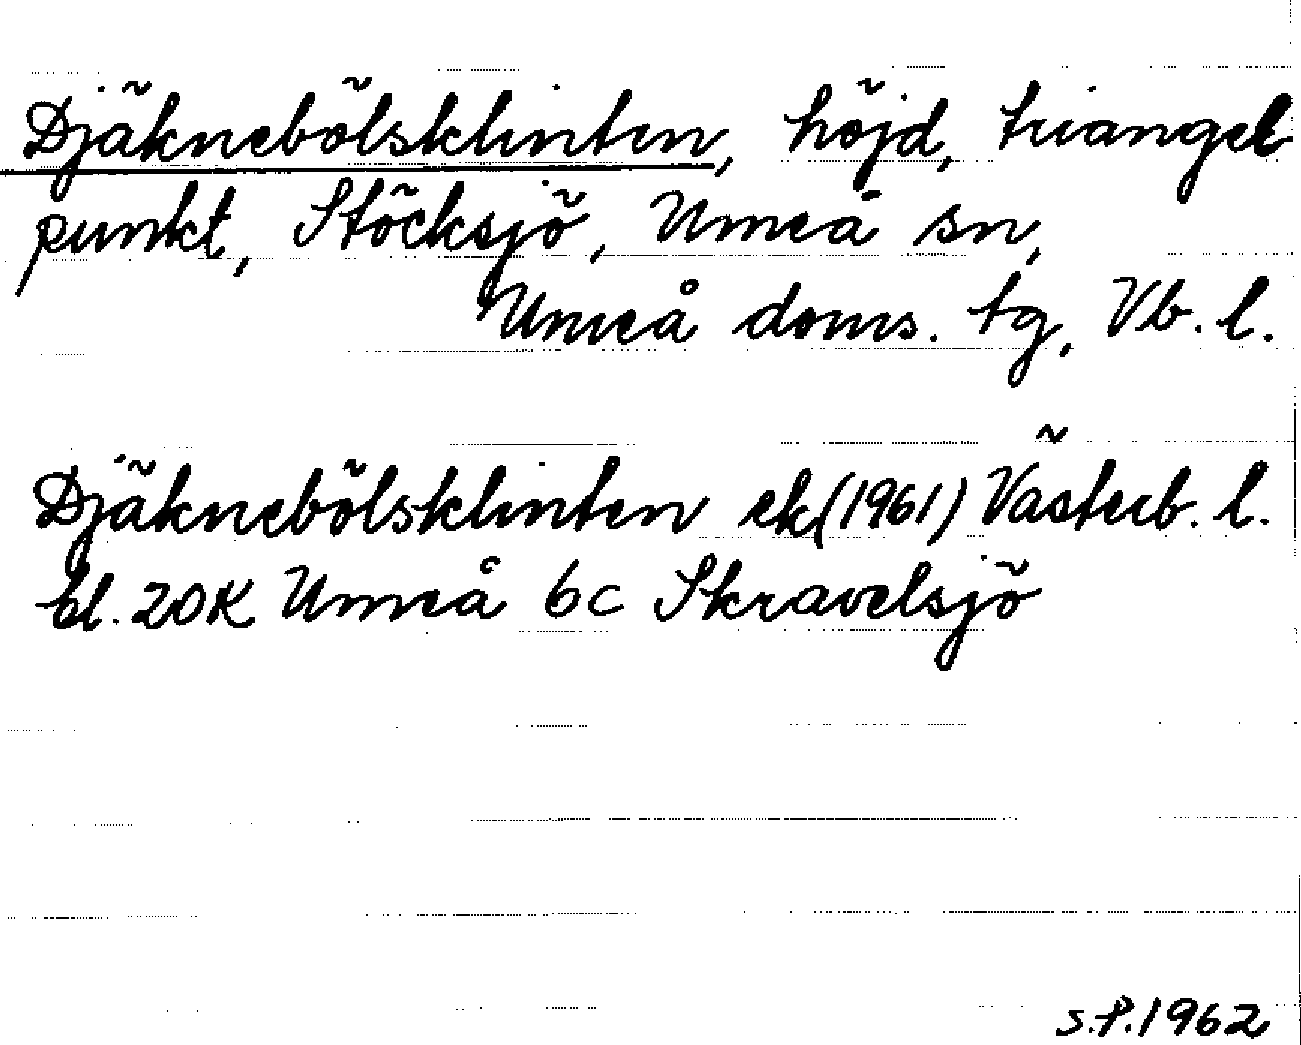 Djäknebölsklinten, höjd, triangel
punkt, Stöcksjö, Umeå sn,
Umeå doms. tg, Vb. l.
Djäknebölsklinten ek (1961) Västerb. l.
bl. 20K Umeå 6c Skravelsjö
S.P. 1962